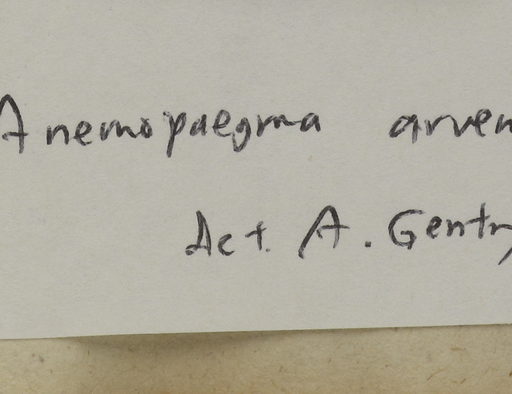 Anemopaegma arven
det. A. Gentry